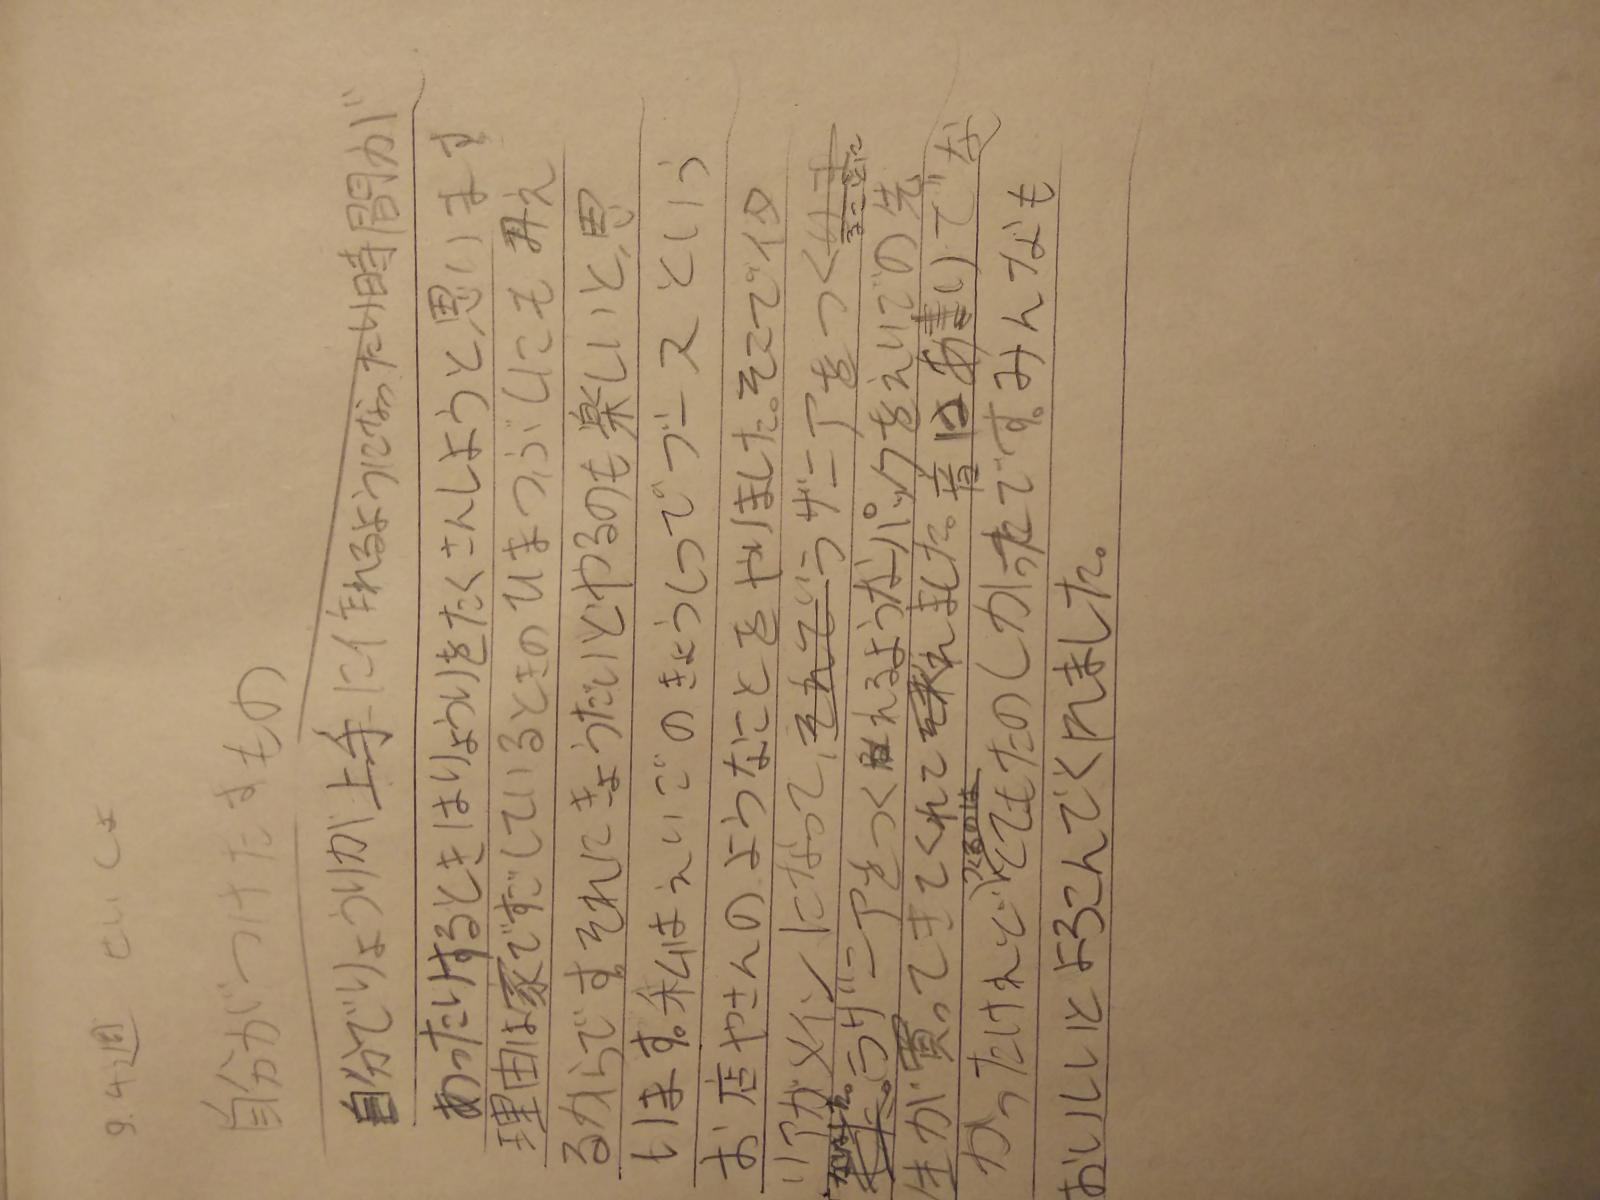 9.4週 せいしょ
自分がつけたすもの
自分でりょうりが上手に作れるようになったり時間が
あったりするときはりょうりをたくさんしようと思います
理由は家ですごしているときのひまつぶしにも
るからです。それにきょうだいとやるのも楽しいと思
います。私はえいごのきょうしつでブースという
お店やさんのようなことをやりました。そこで
がメインになって、ラザニアをつくることに
なりました。ラザニアをつくれるようなパックをえいごの先
生が買ってきてくれてそれました。昔はあまりでな
かったけれどつくるのはとてもたのしかったです。みんなも
おいしいとよろこんでくれました。